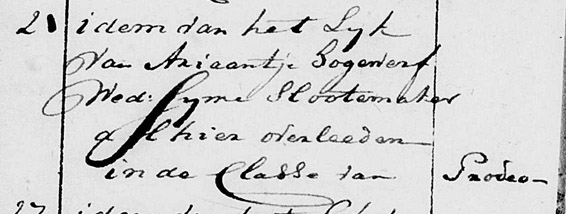 21 idem van het Lyk
van Ariaantje Bogewerf
Wed: Syme Slootemaker
alhier overleeden
in de Classe van Prodeo
27 idem van het